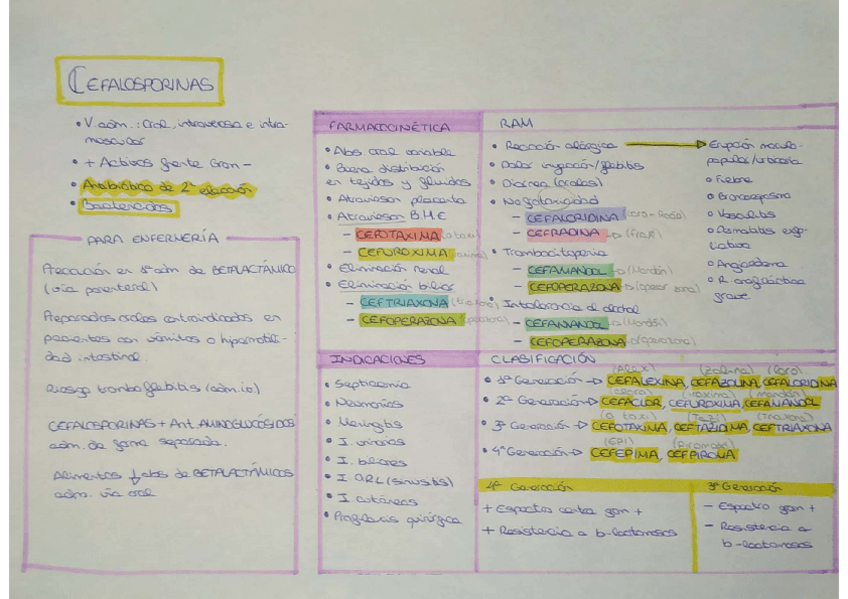 CEFALOSPORINAS
• V adm.: Oral, intravenosa e intra-
muscular
• + Activos frente Gram -
• Antibiótico de 2ª elección
• Bactericidas
PARA ENFERMERÍA
Precaución en 1ª adm. de BETALACTÁMICO
(vía parenteral)
Preparados orales contraindicados en
pacientes con vómitos o hipermotili-
dad intestinal.
Riesgo tromboflebitis (adm. iv)
CEFALOSPORINAS + Ant. AMINOGLUCÓSIDOS
adm. de forma separada.
Alimentos ↓ abs de BETALACTÁMICOS
adm. vía oral
FARMACOCINÉTICA
• Abs oral variable
• Buena distribución
en tejidos y fluidos
• Atraviesan placenta
• Atraviesan BHE
- CEFOTAXIMA (a taxi)
- CEFUROXIMA
• Eliminación renal
• Eliminación biliar
- CEFTRIAXONA
- CEFOPERAZONA
RAM
• Reacción alérgica
• Dolor inyección/flebitis
• Diarrea (orales)
• Nefrotoxicidad
- CEFALORIDINA
- CEFRADINA
• Trombocitopenia
- CEFAMANDOL → (Mandón)
- CEFOPERAZONA → (operar zona)
• Intolerancia al alcohol
- CEFAMANDOL → (Mandón)
- CEFOPERAZONA
Erupción maculo-
papular/urticaria
• Fiebre
• Broncoespasmo
• Vasculitis
• Dermatitis exfo-
liativa
• Angioedema
• R. anafiláctica
grave
INDICACIONES
• Septicemia
• Neumonías
• Meningitis
• I. urinarias
• I. biliares
• I ORL (sinusitis)
• I cutáneas
• Profilaxis quirúrgica
CLASIFICACIÓN
(Alex)
• 1ª Generación → CEFALEXINA, CEFAZOLINA, CEFALORIDINA
(mandón)
• 2ª Generación → CEFACLOR, CEFUROXIMA, CEFAMANDOL
(a taxi) (Tazi) (Triaxona)
• 3ª Generación → CEFOTAXIMA, CEFTAZIDIMA, CEFTRIAXONA
(EPI)
• 4ª Generación → CEFEPIMA, CEFPIROMA
4ª Generación
+ Espectro contra gram +
+ Resistencia a b-lactamasas
3ª Generación
- Espectro gram +
- Resistencia a
b-lactamasas